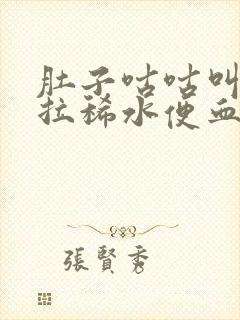 肚子咕咕叫
拉稀水便血
張賢秀